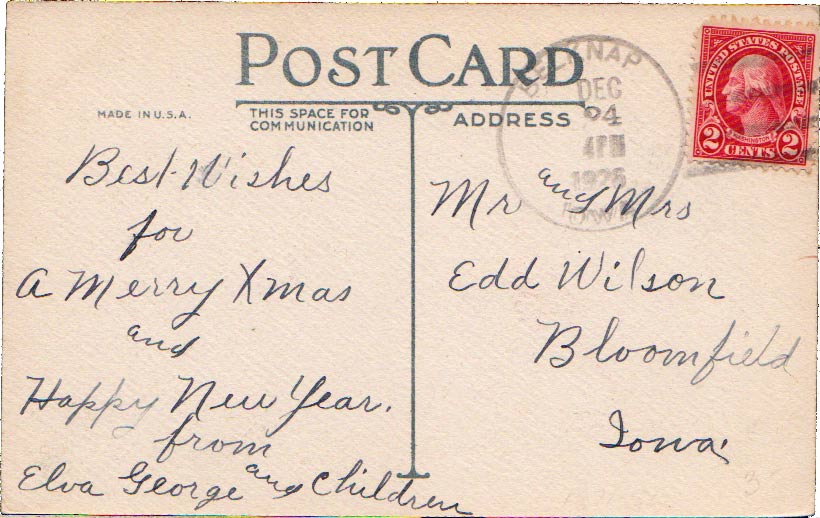 POST CARD
MADE IN U.S.A.
THIS SPACE FOR
COMMUNICATION
ADDRESS
BELKNAP
DEC
24
4PM
IOWA
UNITED STATES POSTAGE
WASHINGTON
2 CENTS 2
Best Wishes
for
A Merry Xmas
and
Happy New Year.
from
Elva George and Children
Mr and Mrs
Edd Wilson
Bloomfield
Iowa
3